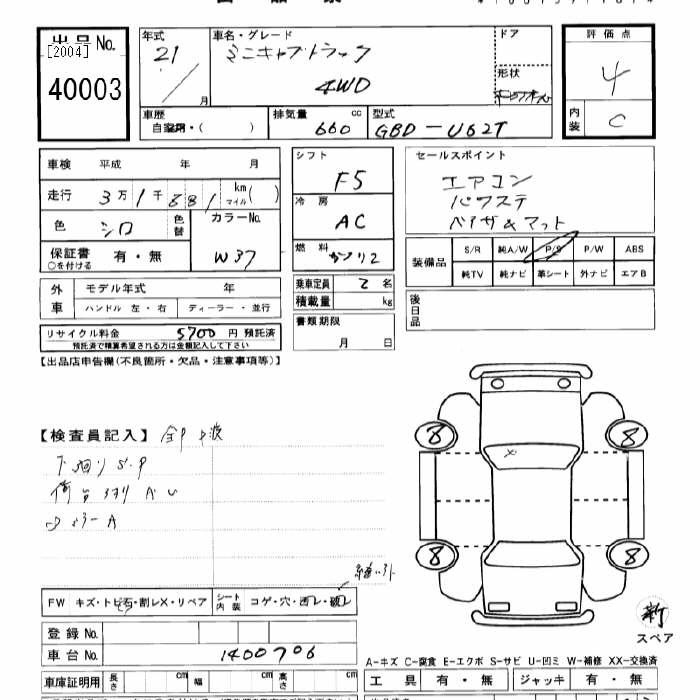 出品No.
[2004]
40003
年式
21
月
車名・グレード
ミニキャブトラック
4WD
ドア
形状
評価点
4
内装
C
車歴
自家用・( )
排気量
660 cc
型式
GBD-U62T
車検 平成 年 月
走行 3万1千881 km マイル( )
色 シロ 色替
カラーNo.
W37
保証書 有・無
○を付ける
シフト
F5
冷房
AC
燃料
ガソリン
セールスポイント
エアコン
パワステ
バイザ&マット
装備品
S/R 純A/W P/S P/W ABS
純TV 純ナビ 革シート 外ナビ エアB
外車
モデル年式 年
ハンドル 左・右 ディーラー・並行
乗車定員 2名
積載量 kg
後日品
リサイクル料金 5700 円 預託済
預託済で精算希望される方は金額記入して下さい
書類期限
月 日
【出品店申告欄(不良箇所・欠品・注意事項等)】
【検査員記入】
下廻りS.P
荷台
ミラーA
8 8
8 8
FW キズ・トビ石・割レX・リペア
シート内装 コゲ・穴・凹レ・破レ
登録No.
車台No. 1400706
新
スペア
A-キズ C-腐食 E-エクボ S-サビ U-凹ミ W-補修 XX-交換済
車庫証明用 長さ cm 幅 cm 高さ cm
工具 有・無 ジャッキ 有・無